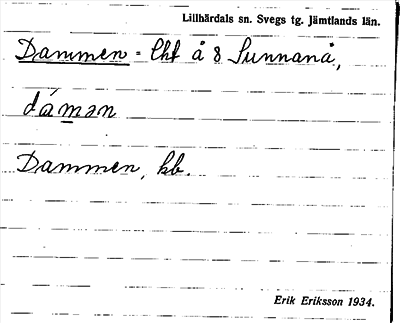 Lillhärdals sn. Svegs tg. Jämtlands län.
Dammen = lht å 8 Sunnanå,
dáman
Dammen, kb.
Erik Eriksson 1934.